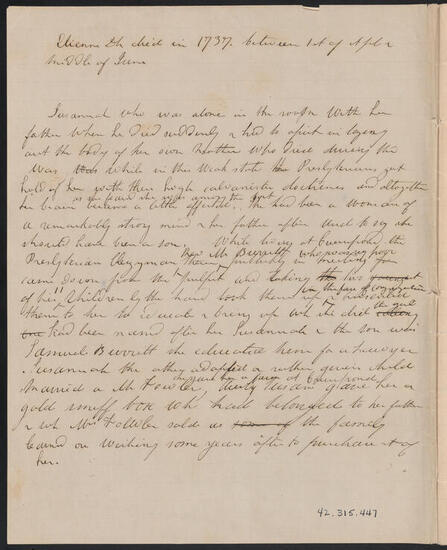 Etienne D L died in 1737. between 1st of Apl &
middle of June
Susannah who was alone in the room with her
father when he died suddenly & had to assist in laying
out the body of her own mother who died during the
War was while in this weak state the Presbyterians got
hold of her with their high calvanistic doctrines and altogether
as she feared she was amongst the lost
her brain became a little affected. She had been a woman of
a remarkably strong mind & her father often used to say she
should have been a son. While living at the
Presbyterian Clergyman Revd Mr Burritt who was very poor
publickly in meeting
came down from the pulpit and taking his
in the face of congregation
of her children by the hand took them up &
them to her to educate & bring up wh she did the girl
one had been named after her Susannah & the son was
Samuel Burritt she educated him for a Lawyer
Susannah the other adopted or rather given child
married a Mr Fowler her a farm at
gave her a
gold snuff box wh had belonged to her father
& wh Mrs Fowler sold as some of the family
learnd on wishing some years after to purchase it of
her.
42.315.447